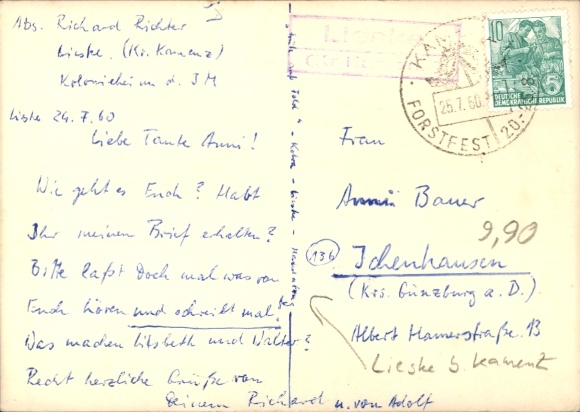 Abs. Richard Richter
Lieske. (Kr. Kamenz)
Kolonieheim d. IM
Lieske 24.7.60
Liebe Tante Anni!
Wie geht es Euch? Habt
Ihr meinen Brief erhalten?
Bitte laßt Doch mal was von
Euch hören und schreibt mal.
Was machen Lisbeth und Walter?
Recht herzliche Grüße von
Deinem Richard u. von Adolf
Lieske
KAM
25.7.60
FORSTFEST 20.-
10
5
DEUTSCHE
DEMOKRATISCHE REPUBLIK
Frau
Anni Bauer
9,90
(13b) Ichenhausen
(Krs. Günzburg a. D.)
Albert Hamerstraße 13
Lieske b. Kamenz